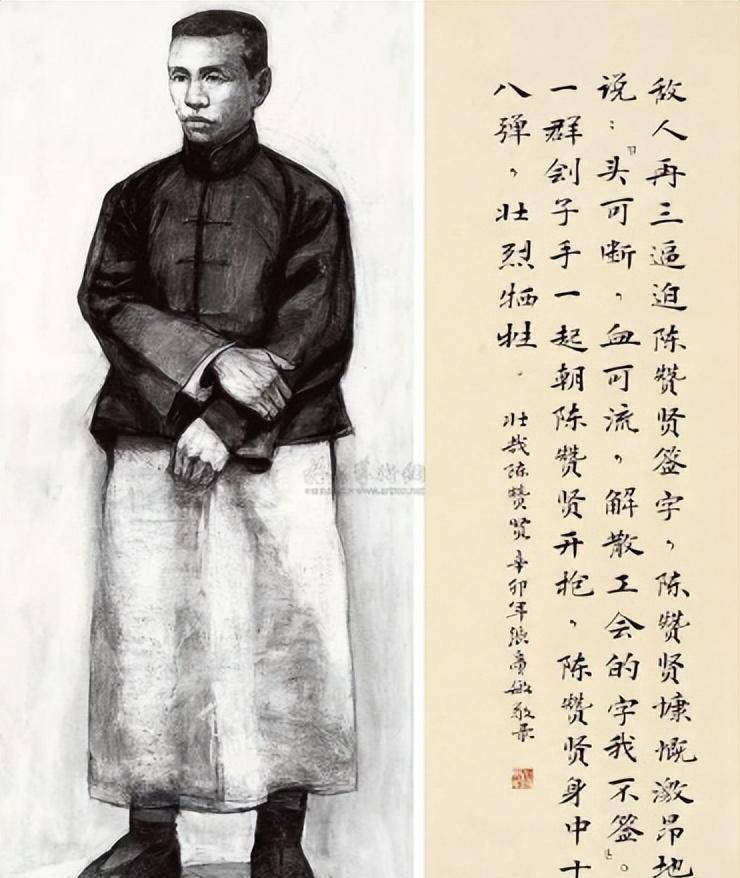 敌人再三逼迫陈赞贤签字，陈赞贤慷慨激昂地
说：「头可断，血可流，解散工会的字我不签。」
一群刽子手一起朝陈赞贤开枪，陈赞贤身中十
八弹，壮烈牺牲。
壮哉陈赞贤 辛卯年张敏敬录